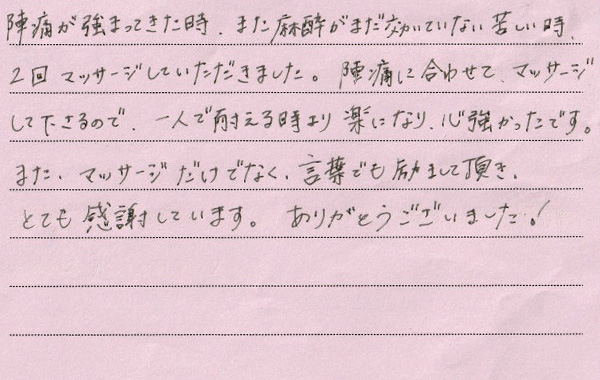 陣痛が強まってきた時、また麻酔がまだ効いていない苦しい時、
2回マッサージしていただきました。陣痛に合わせて、マッサージ
して下さるので、一人で耐える時より楽になり、心強かったです。
また、マッサージだけでなく、言葉でも励まして頂き、
とても感謝しています。ありがとうございました!